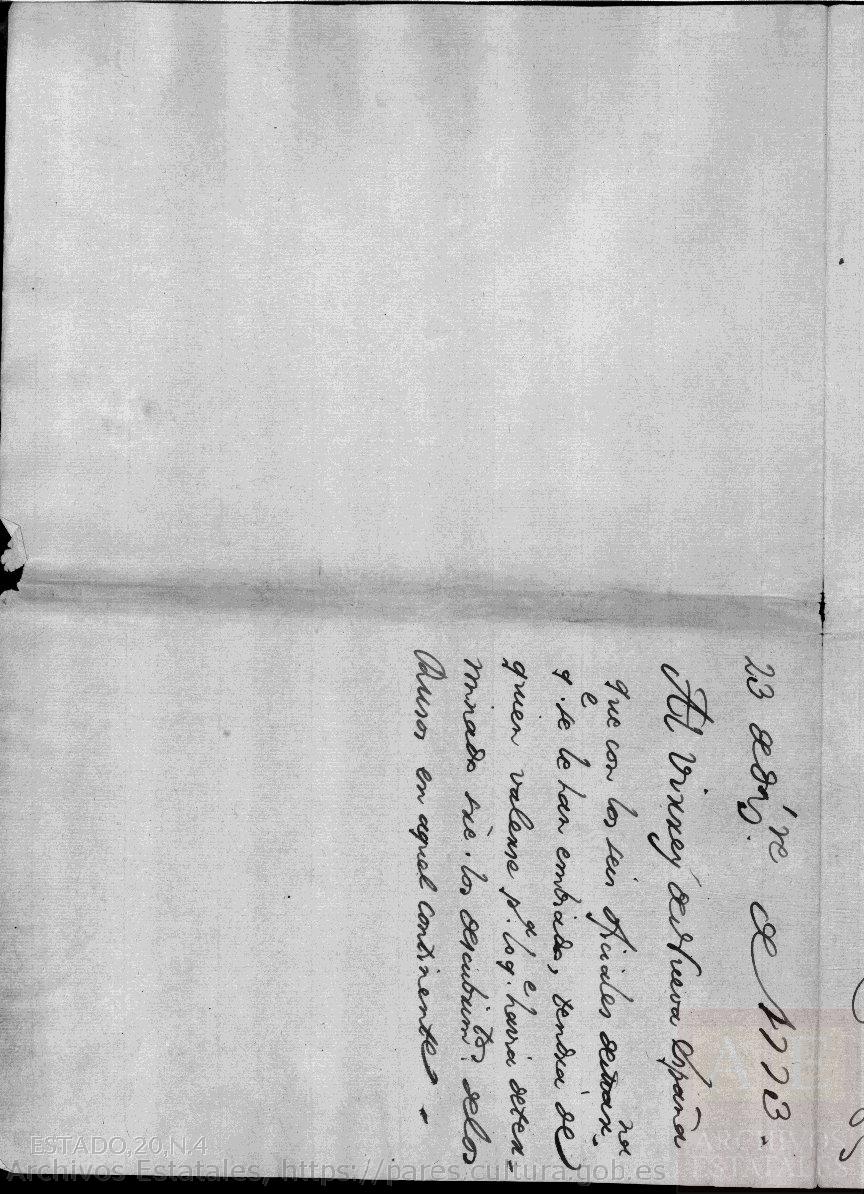 23 de Ag.re de 1773.
Al Virrey de Nueva España
que con los seis oficiales de Mar.na
q.e se le han embiado, tendrá de
quien valerse p.a lo q.e havia deter-
minado sre. los descubrim.tos de los
Rusos en aquel continente.
ESTADO,20,N.4
Archivos Estatales, https://pares.cultura.gob.es
ARCHIVOS
ESTATALES